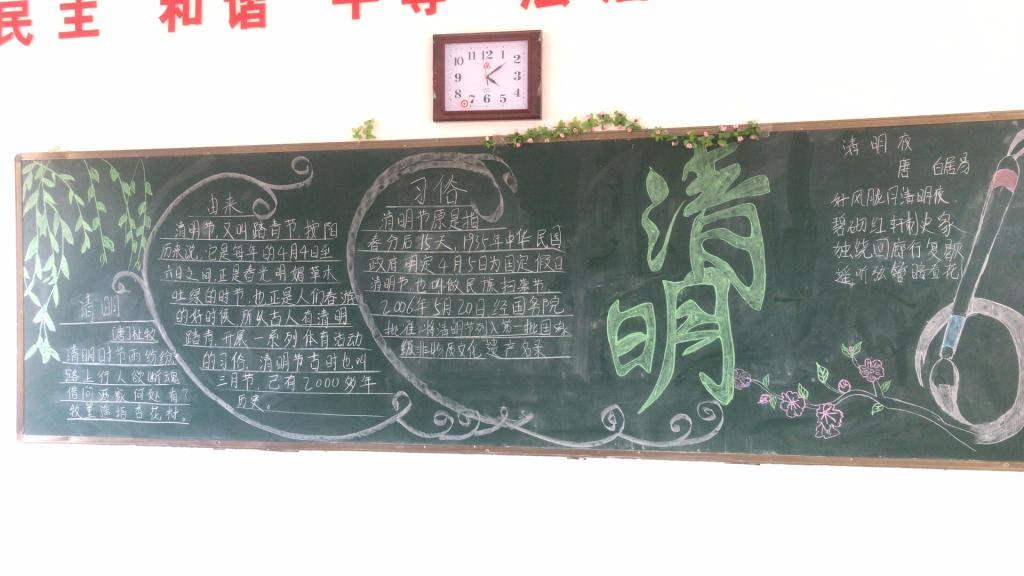 民主 和谐 平等 法治
12
1
2
3
4
5
6
7
8
9
10
11
清明
(唐)杜牧
清明时节雨纷纷
路上行人欲断魂
借问酒家何处有?
牧童遥指杏花村。
由来
清明节,又叫踏青节,按阳
历来说,它是每年的4月4日至
六日之间,正是春光明媚草木
吐绿的时节,也正是人们春游
的好时候,所以古人有清明
踏青,开展一系列体育活动
的习俗。清明节古时也叫
三月节,已有2000多年
历史。
习俗
清明节原是指
春分后15天,1935年中华民国
政府明定4月5日为国定假日
清明节,也叫做民族扫墓节。
2006年5月20日,经国务院
批准将清明节列入第一批国家
级非物质文化遗产名录
清明
清明夜
唐 白居易
好风胧月清明夜,
碧砌红轩刺史家
独绕回廊行复歇
遥听弦管暗看花